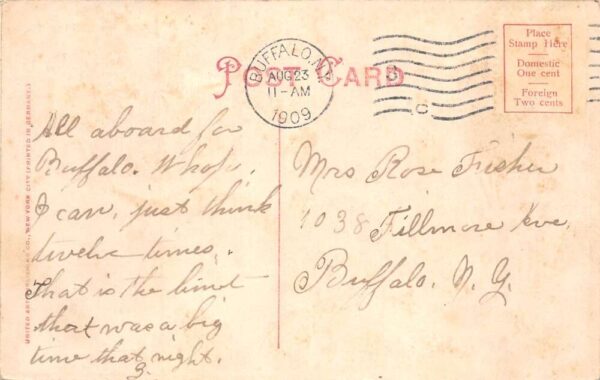 POST CARD
BUFFALO, N.Y.
AUG 23
11-AM
1909
Place
Stamp Here
Domestic
One cent
Foreign
Two cents
All aboard for
Buffalo. Whof.
I can, just think
twelve times.
That is the limit
that was a big
time that night.
3.
Mrs Rose Fisher
1038 Fillmore Ave.
Buffalo. N. Y.
NEW YORK CITY (PRINTED IN GERMANY.)